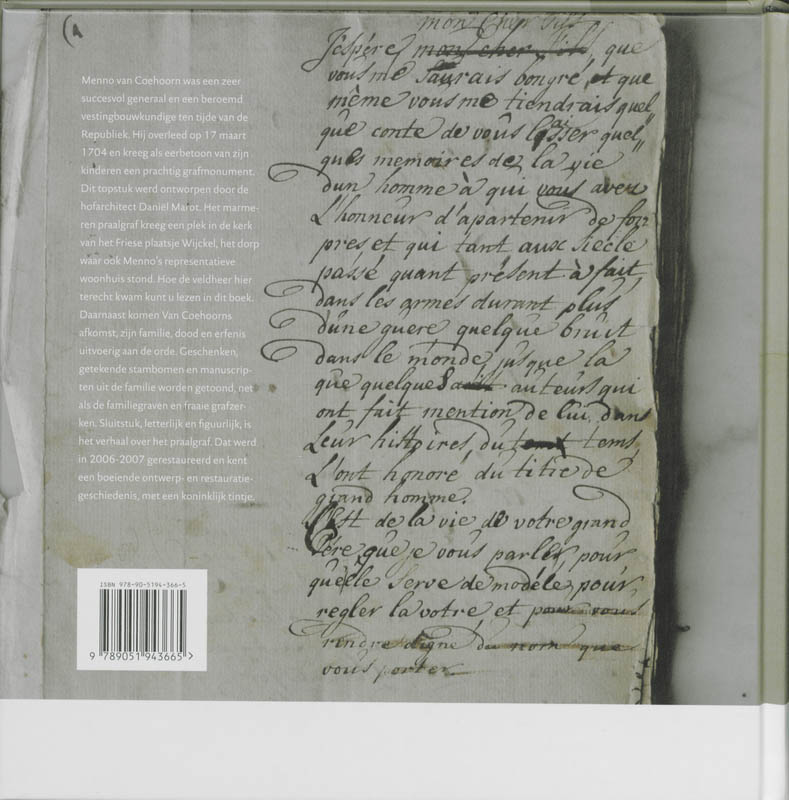 Menno van Coehoorn was een zeer
succesvol generaal en een beroemd
vestingbouwkundige ten tijde van de
Republiek. Hij overleed op 17 maart
1704 en kreeg als eerbetoon van zijn
kinderen een prachtig grafmonument.
Dit topstuk werd ontworpen door de
hofarchitect Daniël Marot. Het marme-
ren praalgraf kreeg een plek in de kerk
van het Friese plaatsje Wijckel, het dorp
waar ook Menno's representatieve
woonhuis stond. Hoe de veldheer hier
terecht kwam kunt u lezen in dit boek.
Daarnaast komen Van Coehoorns
afkomst, zijn familie, dood en erfenis
uitvoerig aan de orde. Geschenken,
getekende stambomen en manuscrip-
ten uit de familie worden getoond, net
als de familiegraven en fraaie grafzer-
ken. Sluitstuk, letterlijk en figuurlijk, is
het verhaal over het praalgraf. Dat werd
in 2006-2007 gerestaureerd en kent
een boeiende ontwerp- en restauratie-
geschiedenis, met een koninklijk tintje.
ISBN 978-90-5194-366-5
9 789051 943665 >
mon Cher fils
J'espére mon cher fils, que
vous me saurais bongré, et que
même vous me tiendrais quel
que conte de vous laisser quel
ques memoires de la vie
dun homme à qui vous avez
L'honneur d'apartenir de fort
pres et qui tant aux siecle
passé quant présent à fait,
dans les armes durant plus
d'une guere quelque bruit
dans le monde, jusque la
que quelques auteurs qui
ont fait mention de lui, dans
Leur histoires, du tems,
L'ont honoré du titre de
grand homme.
C'est de la vie de votre grand
Pére que je vous parle, pour
qu'elle serve de modéle, pour
regler la votre et pour vous
rendre digne du nom que
vous portez